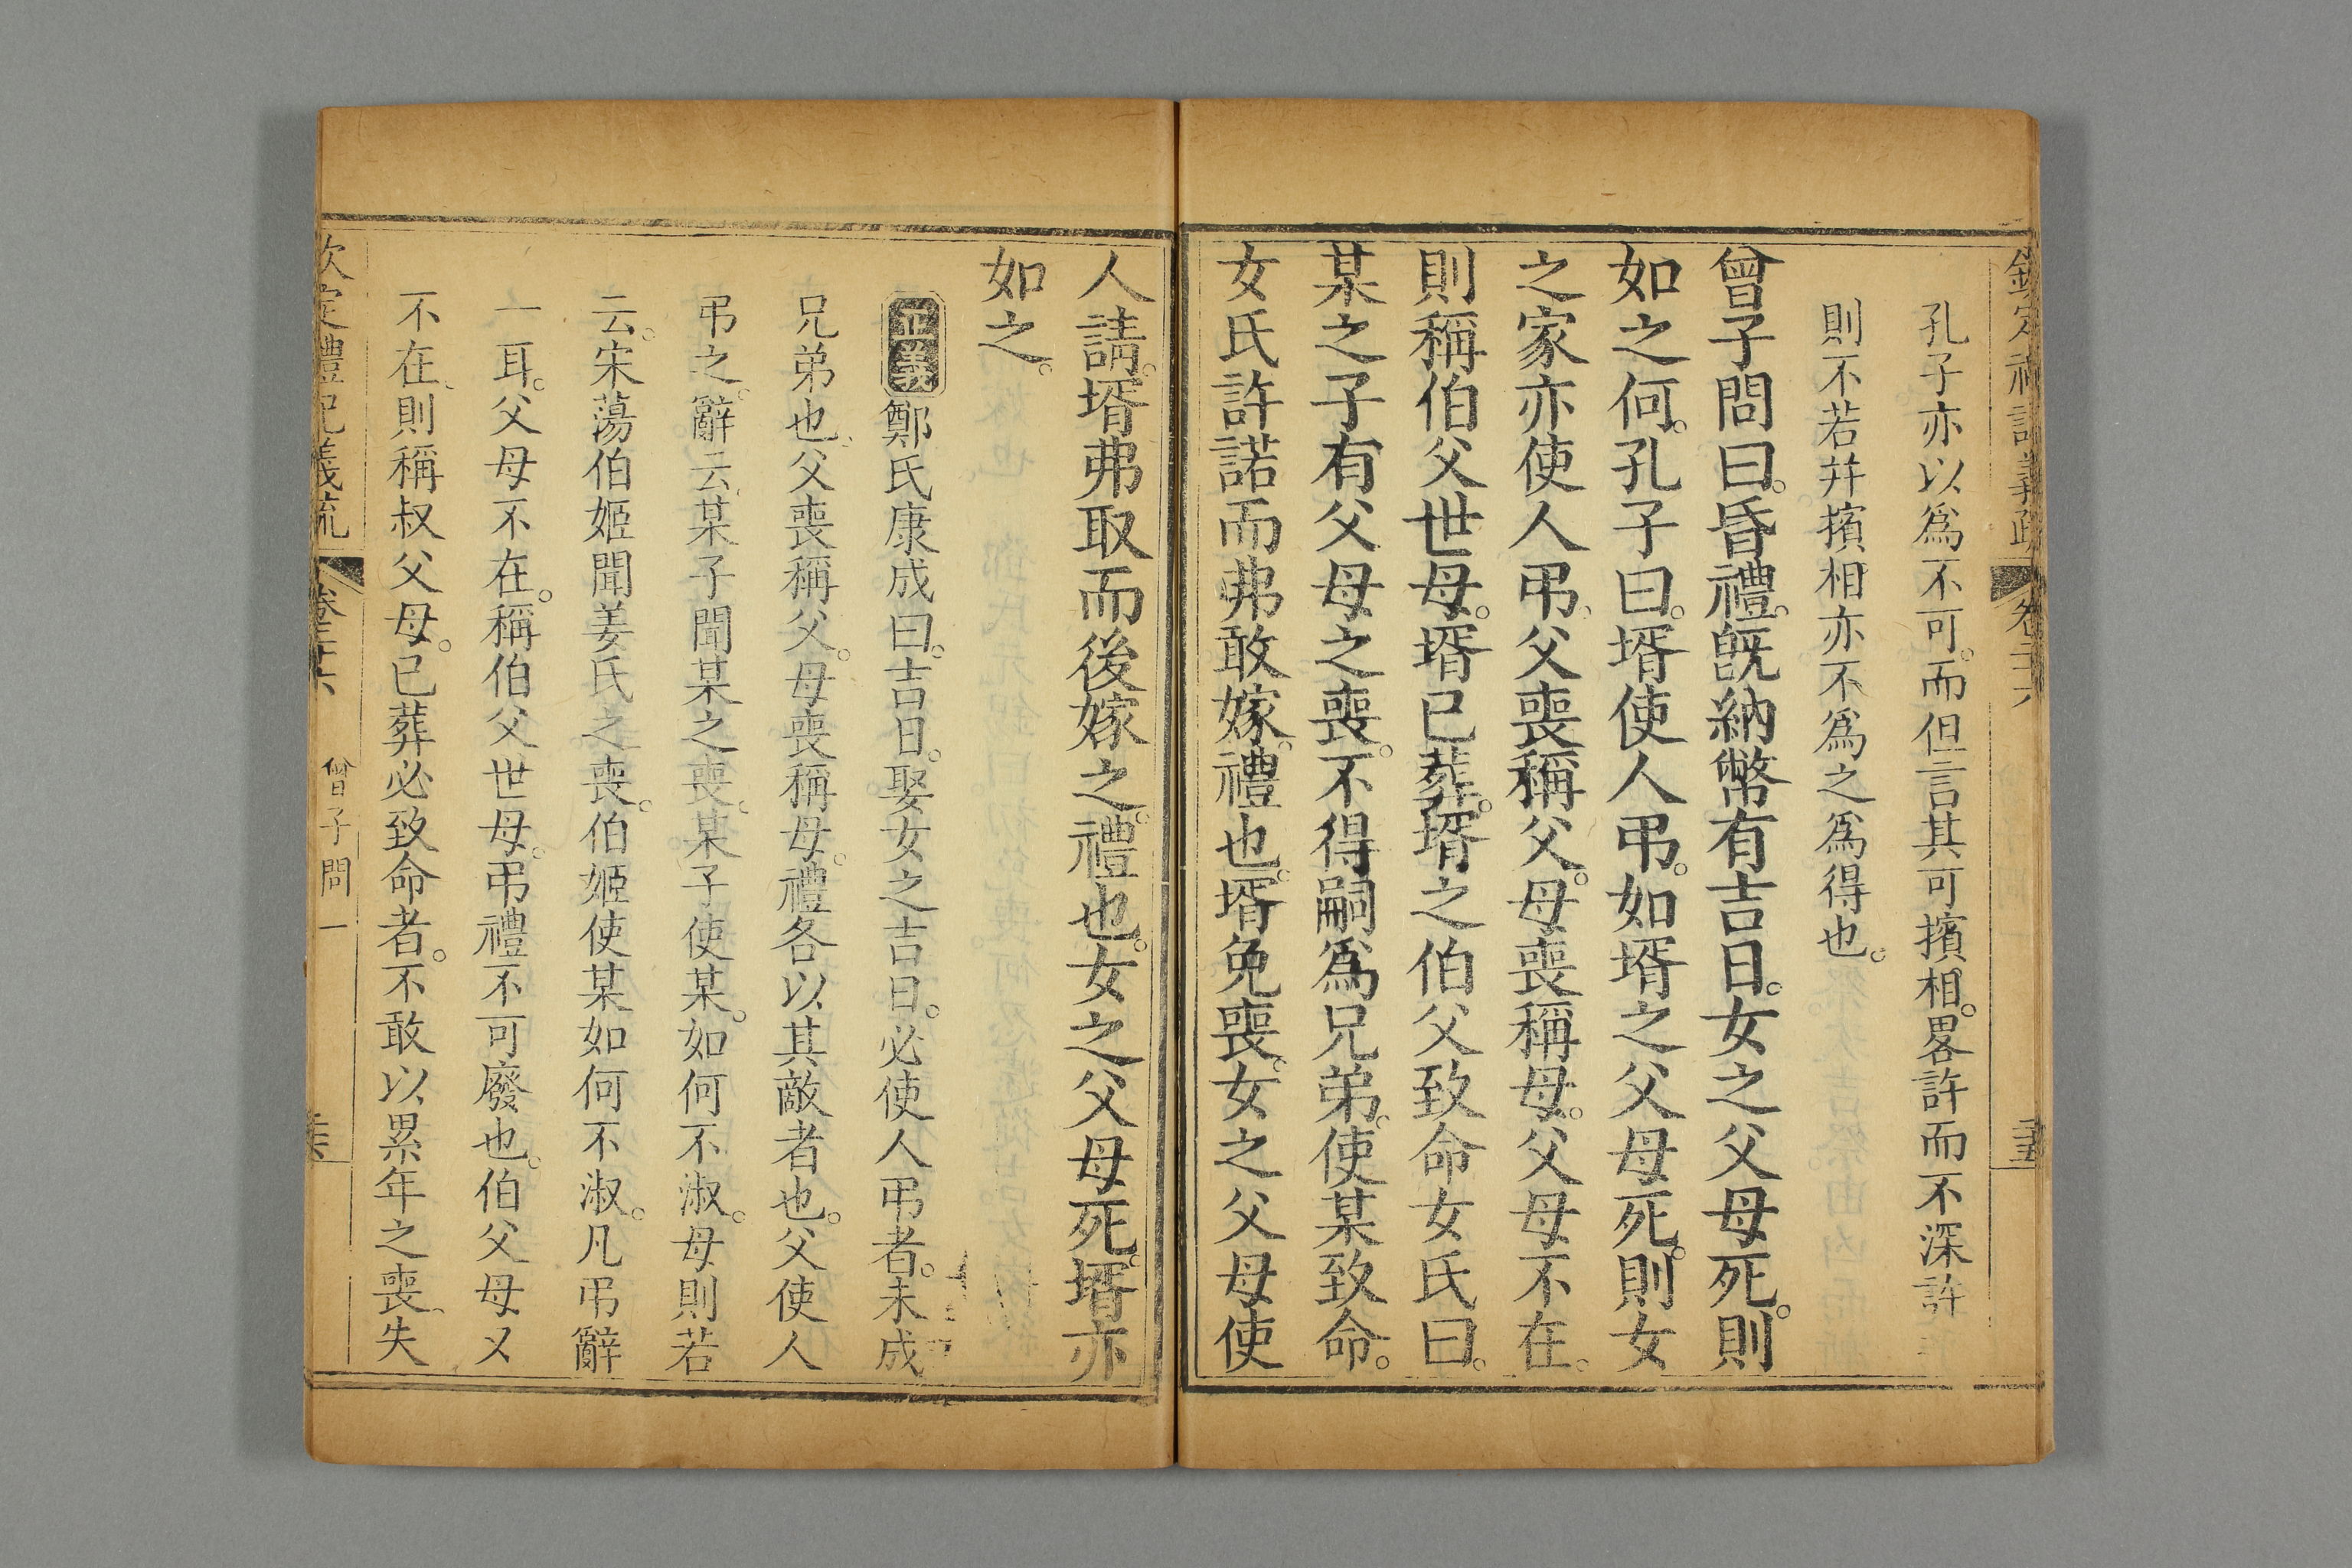 欽定禮記義疏 卷二十六 三五
孔子亦以爲不可。而但言其可擯相。畧許而不深許
則不若并擯相亦不爲之爲得也。
曾子問曰。昏禮。旣納幣有吉日。女之父母死。則
如之何。孔子曰。壻使人弔。如壻之父母死。則女
之家亦使人弔、父喪稱父。母喪稱母。父母不在。
則稱伯父世母。壻已葬。壻之伯父致命女氏曰。
某之子有父母之喪。不得嗣爲兄弟。使某致命。
女氏許諾而弗敢嫁。禮也。壻免喪。女之父母使
人請。壻弗取而後嫁之。禮也。女之父母死。壻亦
如之。
正義 鄭氏康成曰。吉日。娶女之吉日。必使人弔者。未成
兄弟也、父喪稱父。母喪稱母。禮各以其敵者也。父使人
弔之。辭云、某子聞某之喪。某子使某。如何不淑。母則若
云。宋蕩伯姬聞姜氏之喪。伯姬使某如何不淑。凡弔辭
一耳。父母不在。稱伯父世母。弔禮不可廢也。伯父母又
不在、則稱叔父母。已葬必致命者。不敢以累年之喪、失
欽定禮記義疏 卷二十六 曾子問一 三六